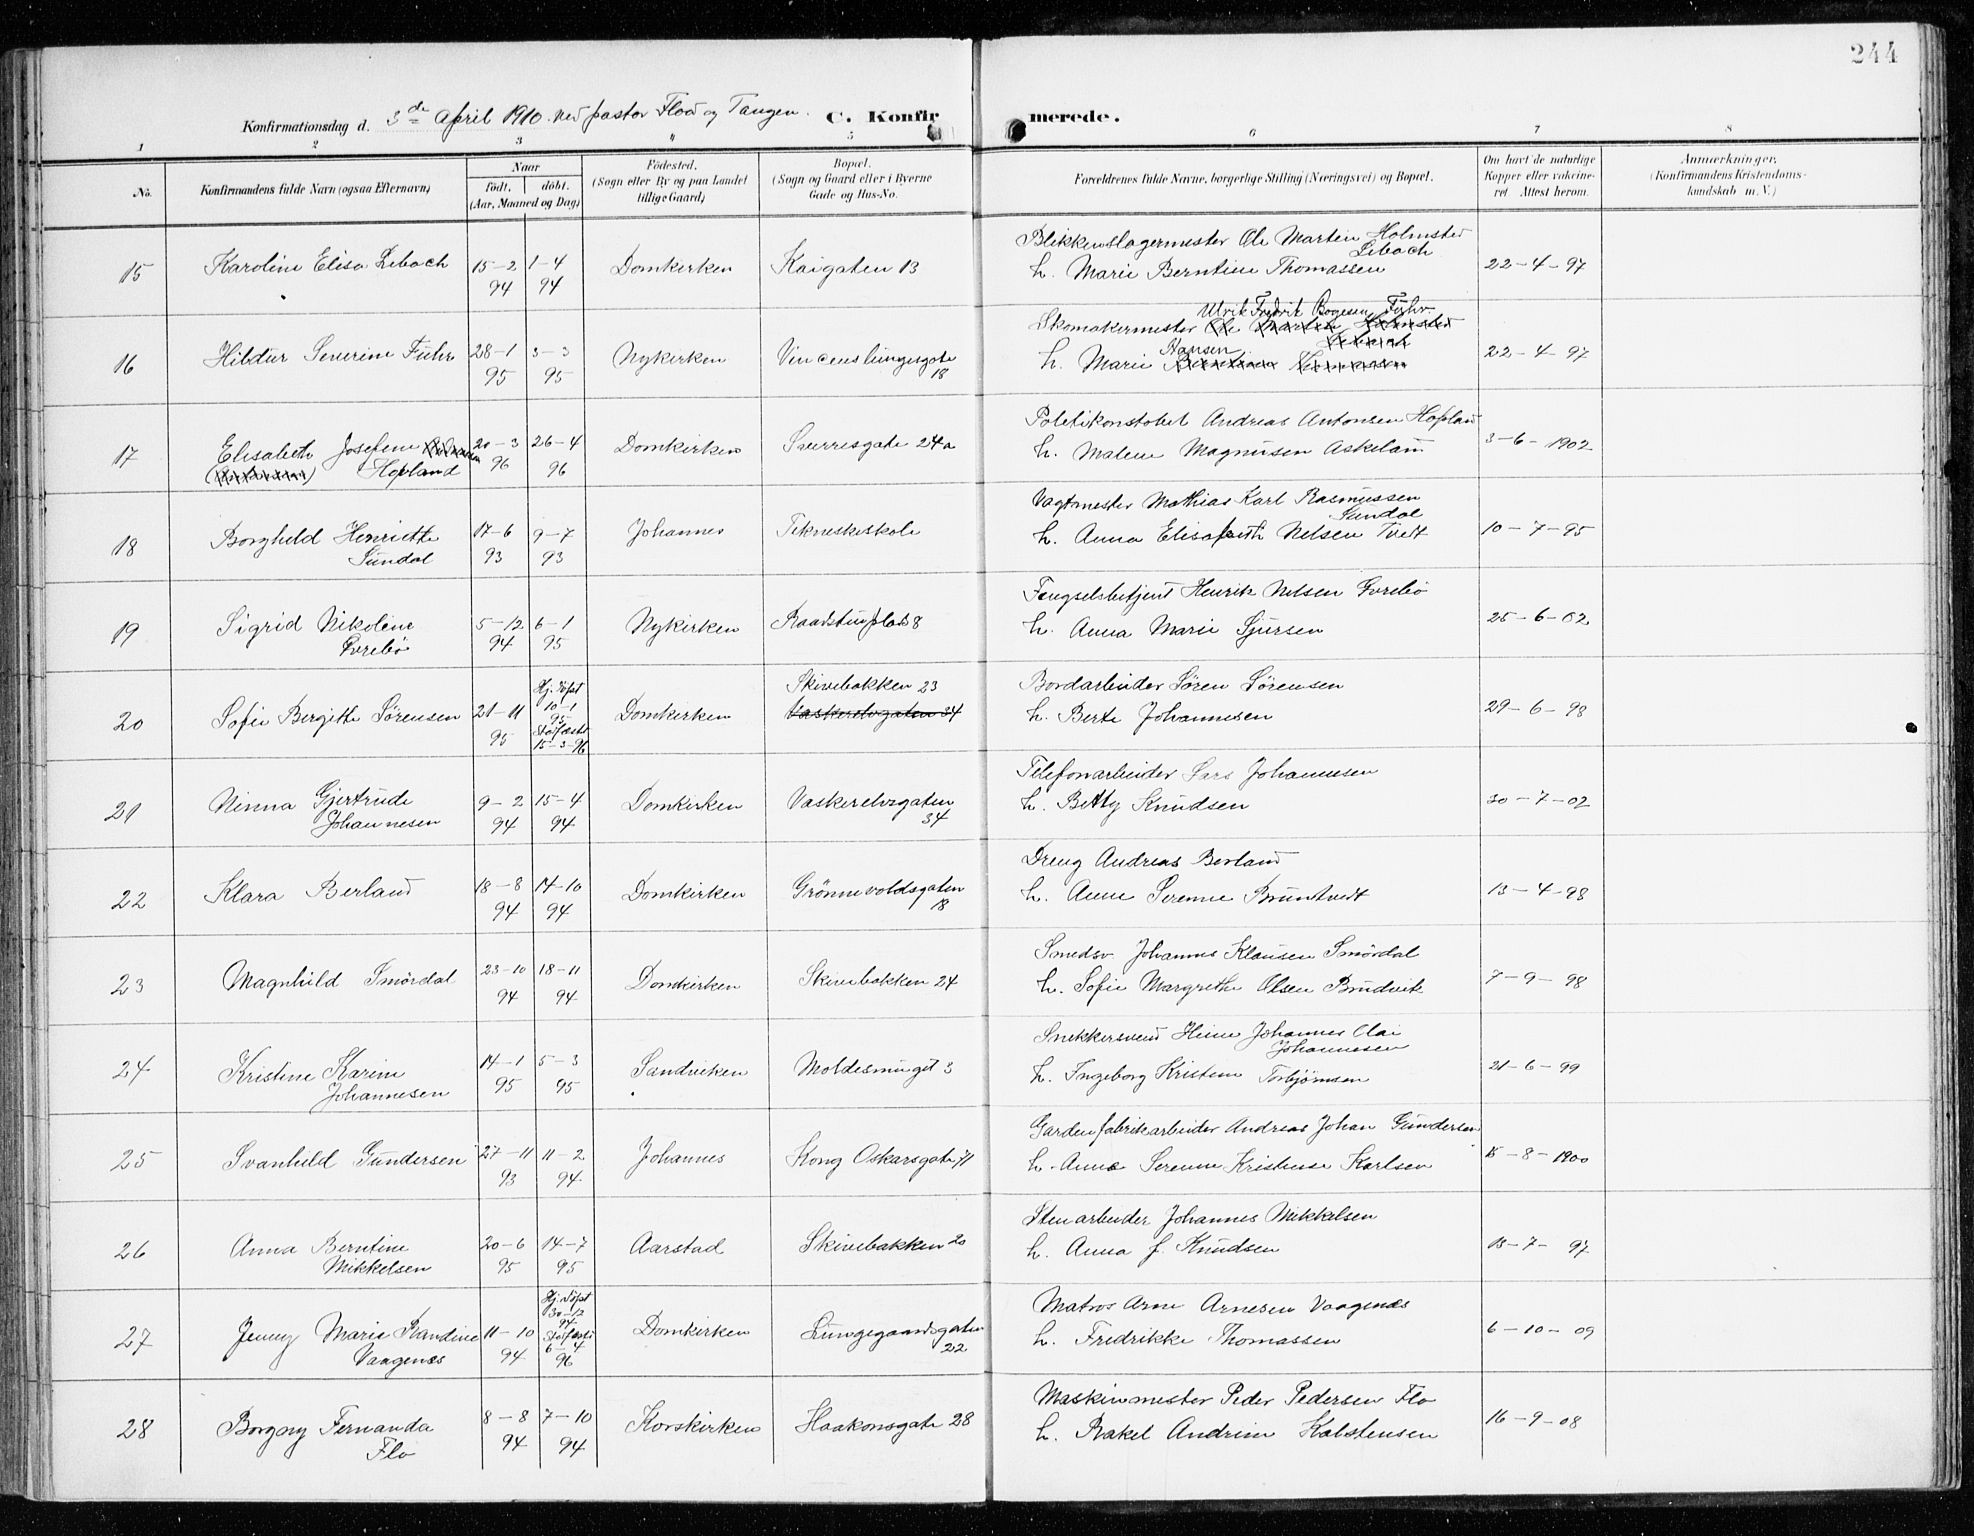 244
Konfirmationsdag d. 3de April 1910 ved pastor Flod og Tangen. C. Konfirmerede.
1 2 3 4 5 6 7 8
No. Konfirmandens fulde Navn (ogsaa Efternavn) Naar født. døbt. (Aar, Maaned og Dag) Fødested. (Sogn eller By og paa Landet tillige Gaard) Bopæl. (Sogn og Gaard eller i Byerne Gade og Hus-No. Forældrenes fulde Navne, borgerlige Stilling (Næringsvei) og Bopæl. Om havt de naturlige Kopper eller vakcineret. Attest herom. Anmærkninger. (Konfirmandens Kristendomskundskab m. V.)
15 Karoline Elisa Lebach 15-2 94 1-4 94 Domkirken Kaigaten 13 Blikkenslagermester Ole Martin Holmsted Lebach
h. Marie Berntine Thomassen 22-4-97
16 Hildur Severine Führ 28-1 95 3-3 95 Nykirken Vincenslungesgate 18 Skomakermester Ulrik Fredrik Bogesen Führ
h. Marie Hansen 22-4-97
17 Elisabeth Josefine Hopland 20-3 96 26-4 96 Domkirken Sverresgate 24a Politikonstabel Andreas Antonsen Hopland
h. Malene Magnussen Askeland 3-6-1902
18 Borghild Henriette Sundal 17-6 93 9-7 93 Johannes Tekniskeskole Vagtmester Mathias Karl Rasmussen Sundal
h. Anna Elisabeth Nilsen Tvedt 10-7-95
19 Sigrid Nikoline Evrebö 5-12 94 6-1 95 Nykirken Raadstuplads 8 Fengselsbetjent Henrik Nilsen Evrebö
h. Anna Marie Sjursen 25-6-02
20 Sofie Bergitte Sörensen 21-11 95 Hj. döpt 10-1 95 Stadfæstet 15-3-96 Domkirken Skivebakken 23
Vaskerelvgaten 34 Bordarbeider Sören Sörensen
h. Berte Johannesen 29-6-98
21 Ninna Gjertrude Johannesen 9-2 94 15-4 94 Domkirken Vaskerelvgaten 34 Telefonarbeider Lars Johannesen
h. Betty Knudsen 30-7-02
22 Klara Berland 18-8 94 14-10 94 Domkirken Grönnevoldsgaten 18 Dreng Andreas Berland
h. Anne Serenne Bruntvedt 13-4-98
23 Magnhild Smördal 23-10 94 18-11 94 Domkirken Skivebakken 24 Smedsv. Johannes Klausen Smördal
h. Sofie Margrethe Olsen Brudvik 7-9-98
24 Kristine Karine Johannesen 14-1 95 5-3 95 Sandviken Moldesmuget 3 Snekkersvend Heine Johannes Olai Johannesen
h. Ingeborg Kristine Torbjörnsen 21-6-99
25 Svanhild Gundersen 27-11 93 11-2 94 Johannes Kong Oskarsgate 71 Gardenfabrikarbeider Andreas Johan Gundersen
h. Anna Serenne Kristense Karlsen 15-8-1900
26 Anna Berntine Mikkelsen 20-6 95 14-7 95 Aarstad Skivebakken 20 Stenarbeider Johannes Mikkelsen
h. Anna J. Knudsen 15-7-97
27 Jenny Marie Kandine Vaagenes 11-10 94 Hj. döpt 30-12 94 Stadfæstet 6-4 96 Domkirken Lungegaardsgaten 22 Matros Arne Arnesen Vaagenes
h. Fredrikke Thomassen 6-10-09
28 Borgny Fernanda Flo 8-8 94 7-10 94 Korskirken Haakonsgate 28 Maskinmester Peder Pedersen Flo
h. Rakel Andrine Kolstensen 16-9-08